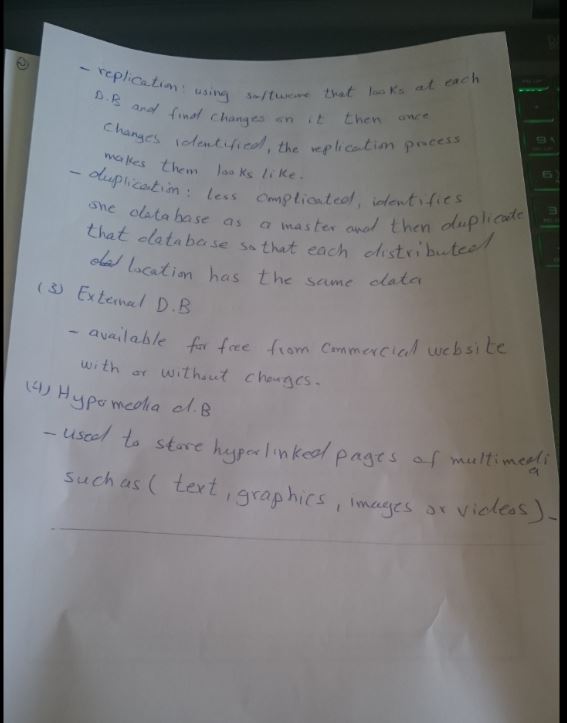 ②
- replication: using software that looks at each
D.B and find changes on it then once
changes identified, the replication process
makes them looks like.
- duplication: less complicated, identifies
one database as a master and then duplicate
that database so that each distributed
location has the same data
(3) External D.B
- available for free from Commercial website
with or without changes.
(4) Hypomedia d.B
- used to store hyperlinked pages of multimedia
such as ( text, graphics, images or videos).